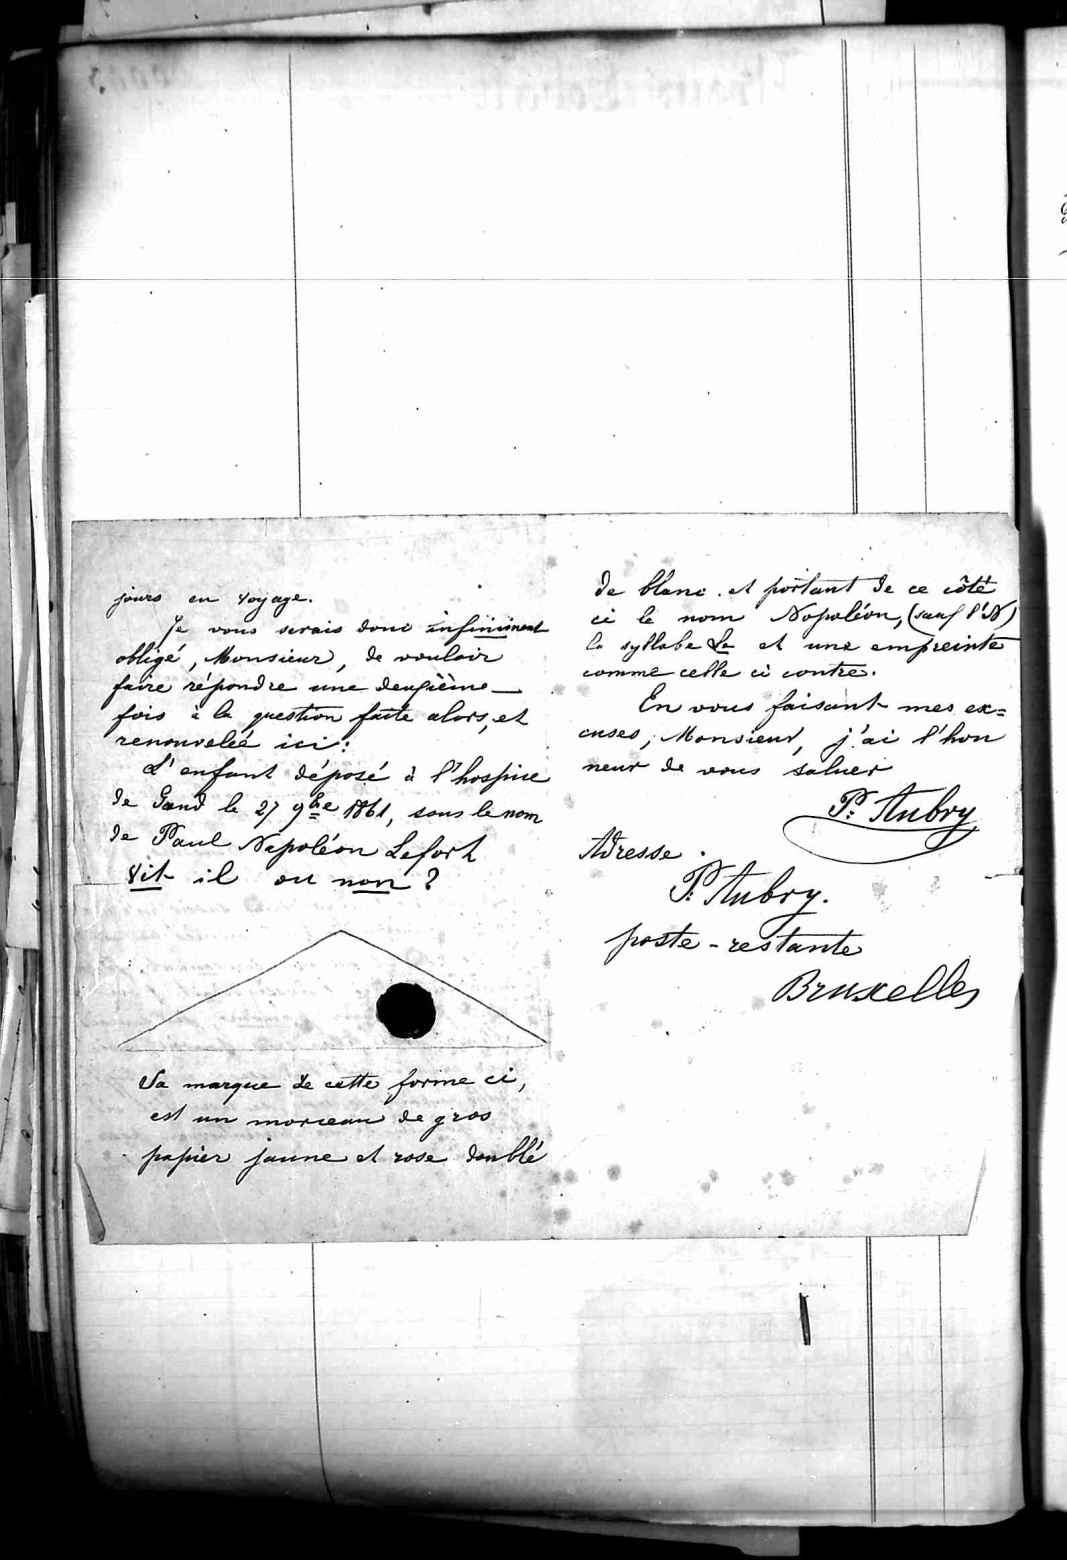 jours en voyage.
Je vous serais donc infiniment
obligé, Monsieur, de vouloir
faire répondre une deuxième
fois à la question faite alors, et
renouvelée ici:
L'enfant déposé à l'hospice
de Gand le 27 9bre 1861, sous le nom
de Paul Napoléon Lefort
vit il ou non?
Sa marque de cette forme ci,
est un morceau de gros
papier jaune et rose doublé
de blanc. et portant de ce côté
ci le nom Napoléon, (sauf l'N)
la syllabe La et une empreinte
comme celle ci contre.
En vous faisant mes ex=
cuses, Monsieur, j'ai l'hon
neur de vous saluer
P. Aubry
Adresse.
P. Aubry.
poste-restante
Bruxelles